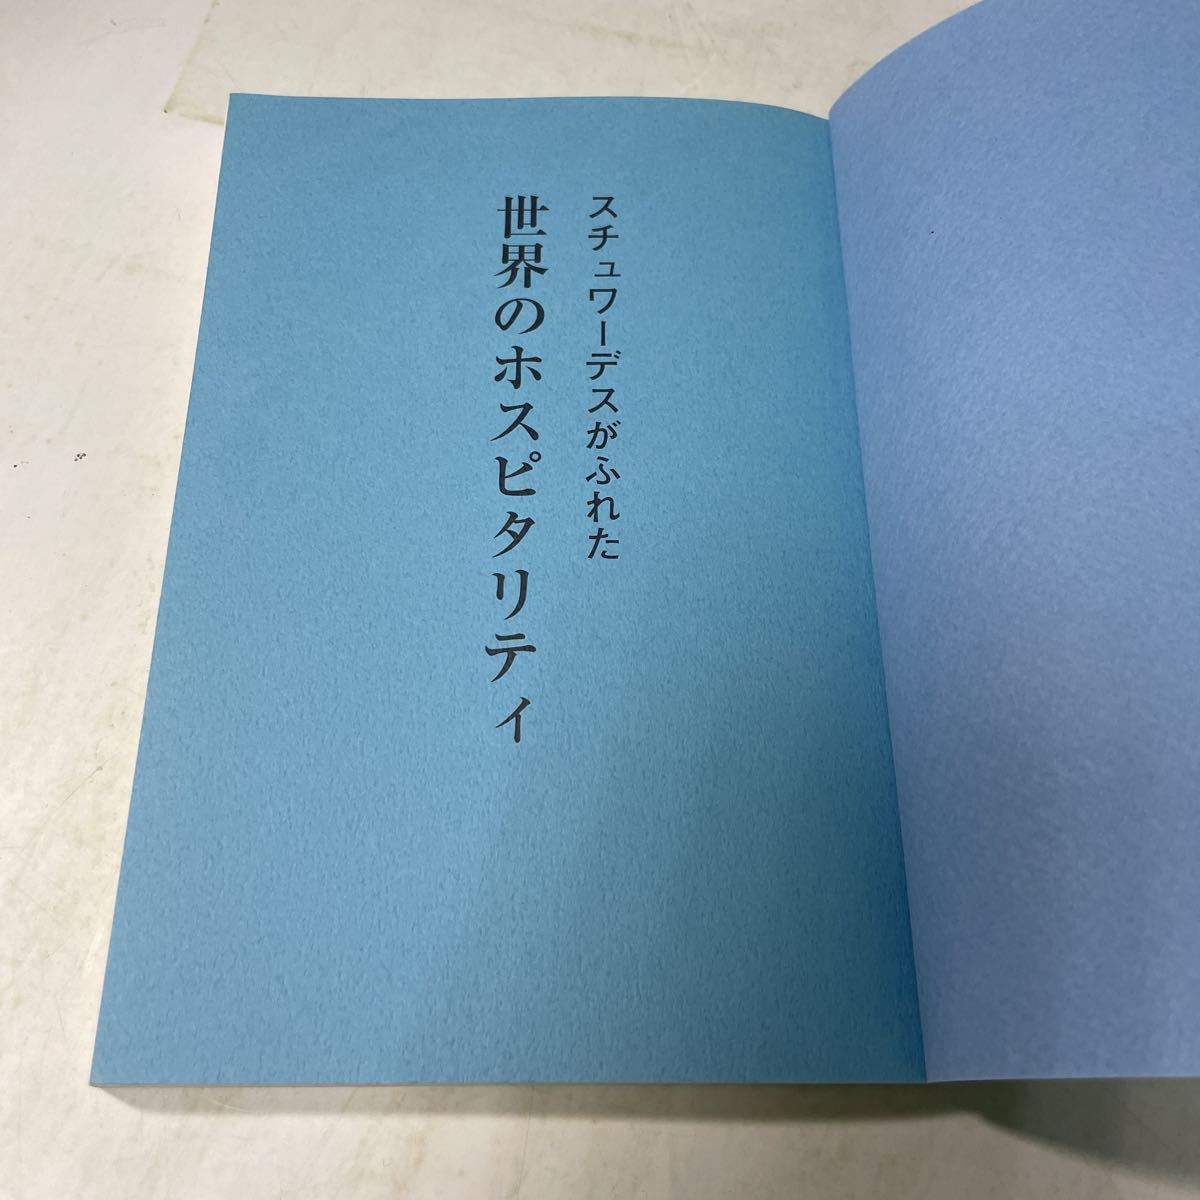 スチュワーデスがふれた
世界のホスピタリティ